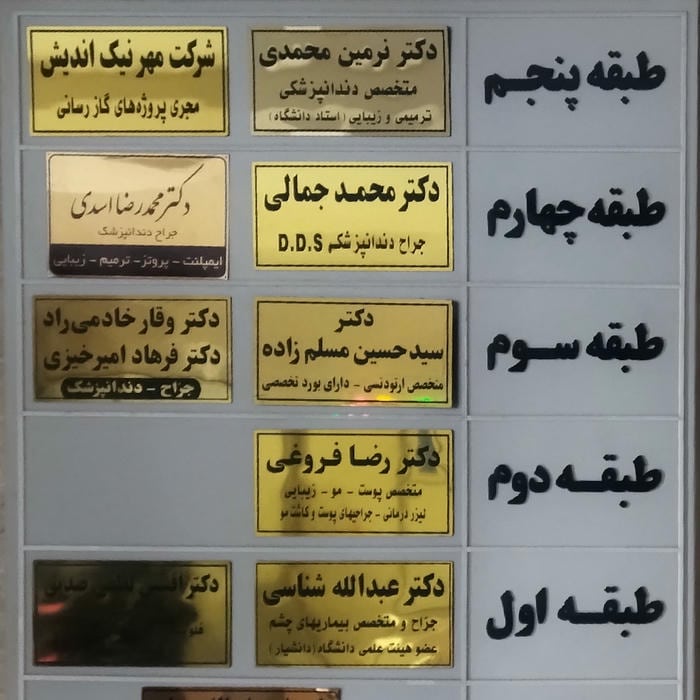 طبقه پنجم
دکتر نرمین محمدی
متخصص دندانپزشکی
ترمیمی و زیبایی (استاد دانشگاه)
شرکت مهر نیک اندیش
مجری پروژه‌های گاز رسانی
طبقه چهارم
دکتر محمد جمالی
جراح دندانپزشک D.D.S
دکتر محمدرضا اسدی
جراح دندانپزشک
ایمپلنت - پروتز - ترمیم - زیبایی
طبقه سوم
دکتر
سید حسین مسلم زاده
متخصص ارتودنسی - دارای بورد تخصصی
دکتر وقار خادمی‌راد
دکتر فرهاد امیرخیزی
جراح - دندانپزشک
طبقه دوم
دکتر رضا فروغی
متخصص پوست - مو - زیبایی
لیزر درمانی - جراحیهای پوست و کاشت مو
طبقه اول
دکتر عبدالله شناسی
جراح و متخصص بیماریهای چشم
عضو هیئت علمی دانشگاه (دانشیار)
دکتر